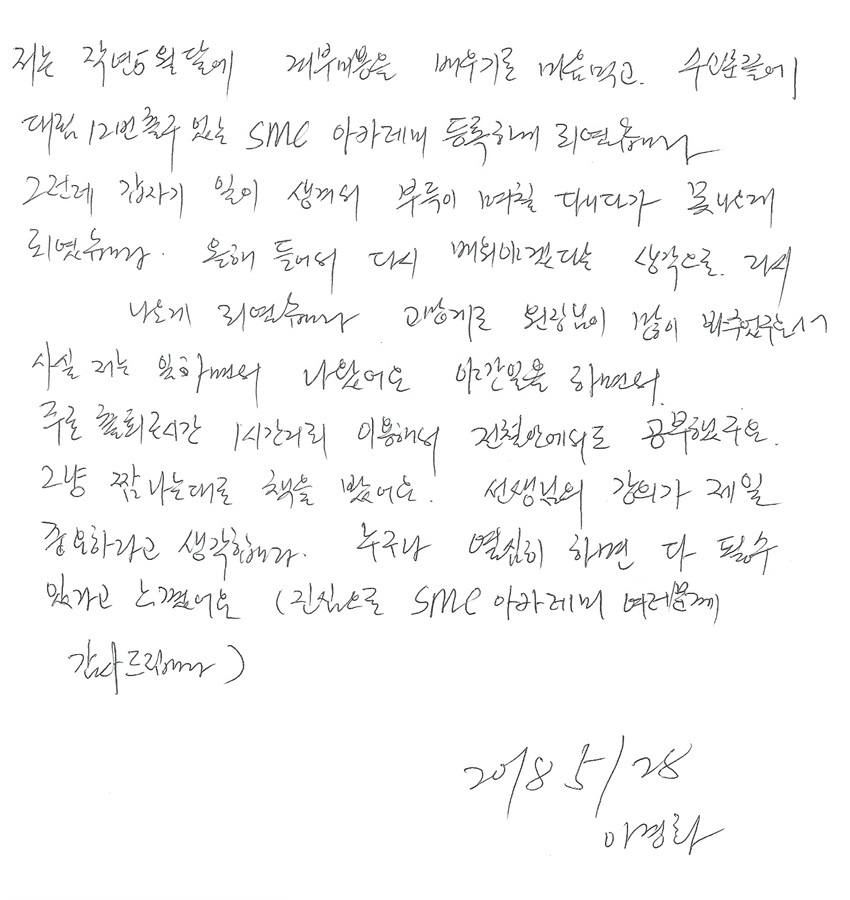 저는 작년5월달에 피부미용을 배우기로 마음먹고. 수소문끝에
대림 12번출구 있는 SMC 아카레미 등록하게 되였습니다
그런데 갑자기 일이 생겨서 부득이 며칠 다니다가 못나오게
되였습니다. 올해 들어서 다시 배워야겠다는 생각으로. 다시
나오게 되였습니다 원장님이 많이
사실 저는 일하면서 나왔어요 야간일을 하면서.
주로 출퇴근시간 1시간거리 이용해서 전철안에서도 공부했구요.
그냥 짬나는대로 책을 봤어요. 선생님의 강의가 제일
중요하다고 생각합니다. 누구나 열심히 하면 다 될수
있다고 느꼈어요 (진심으로 SMC 아카레미 여러분께
감사드립니다)
2018 5/28
이경화